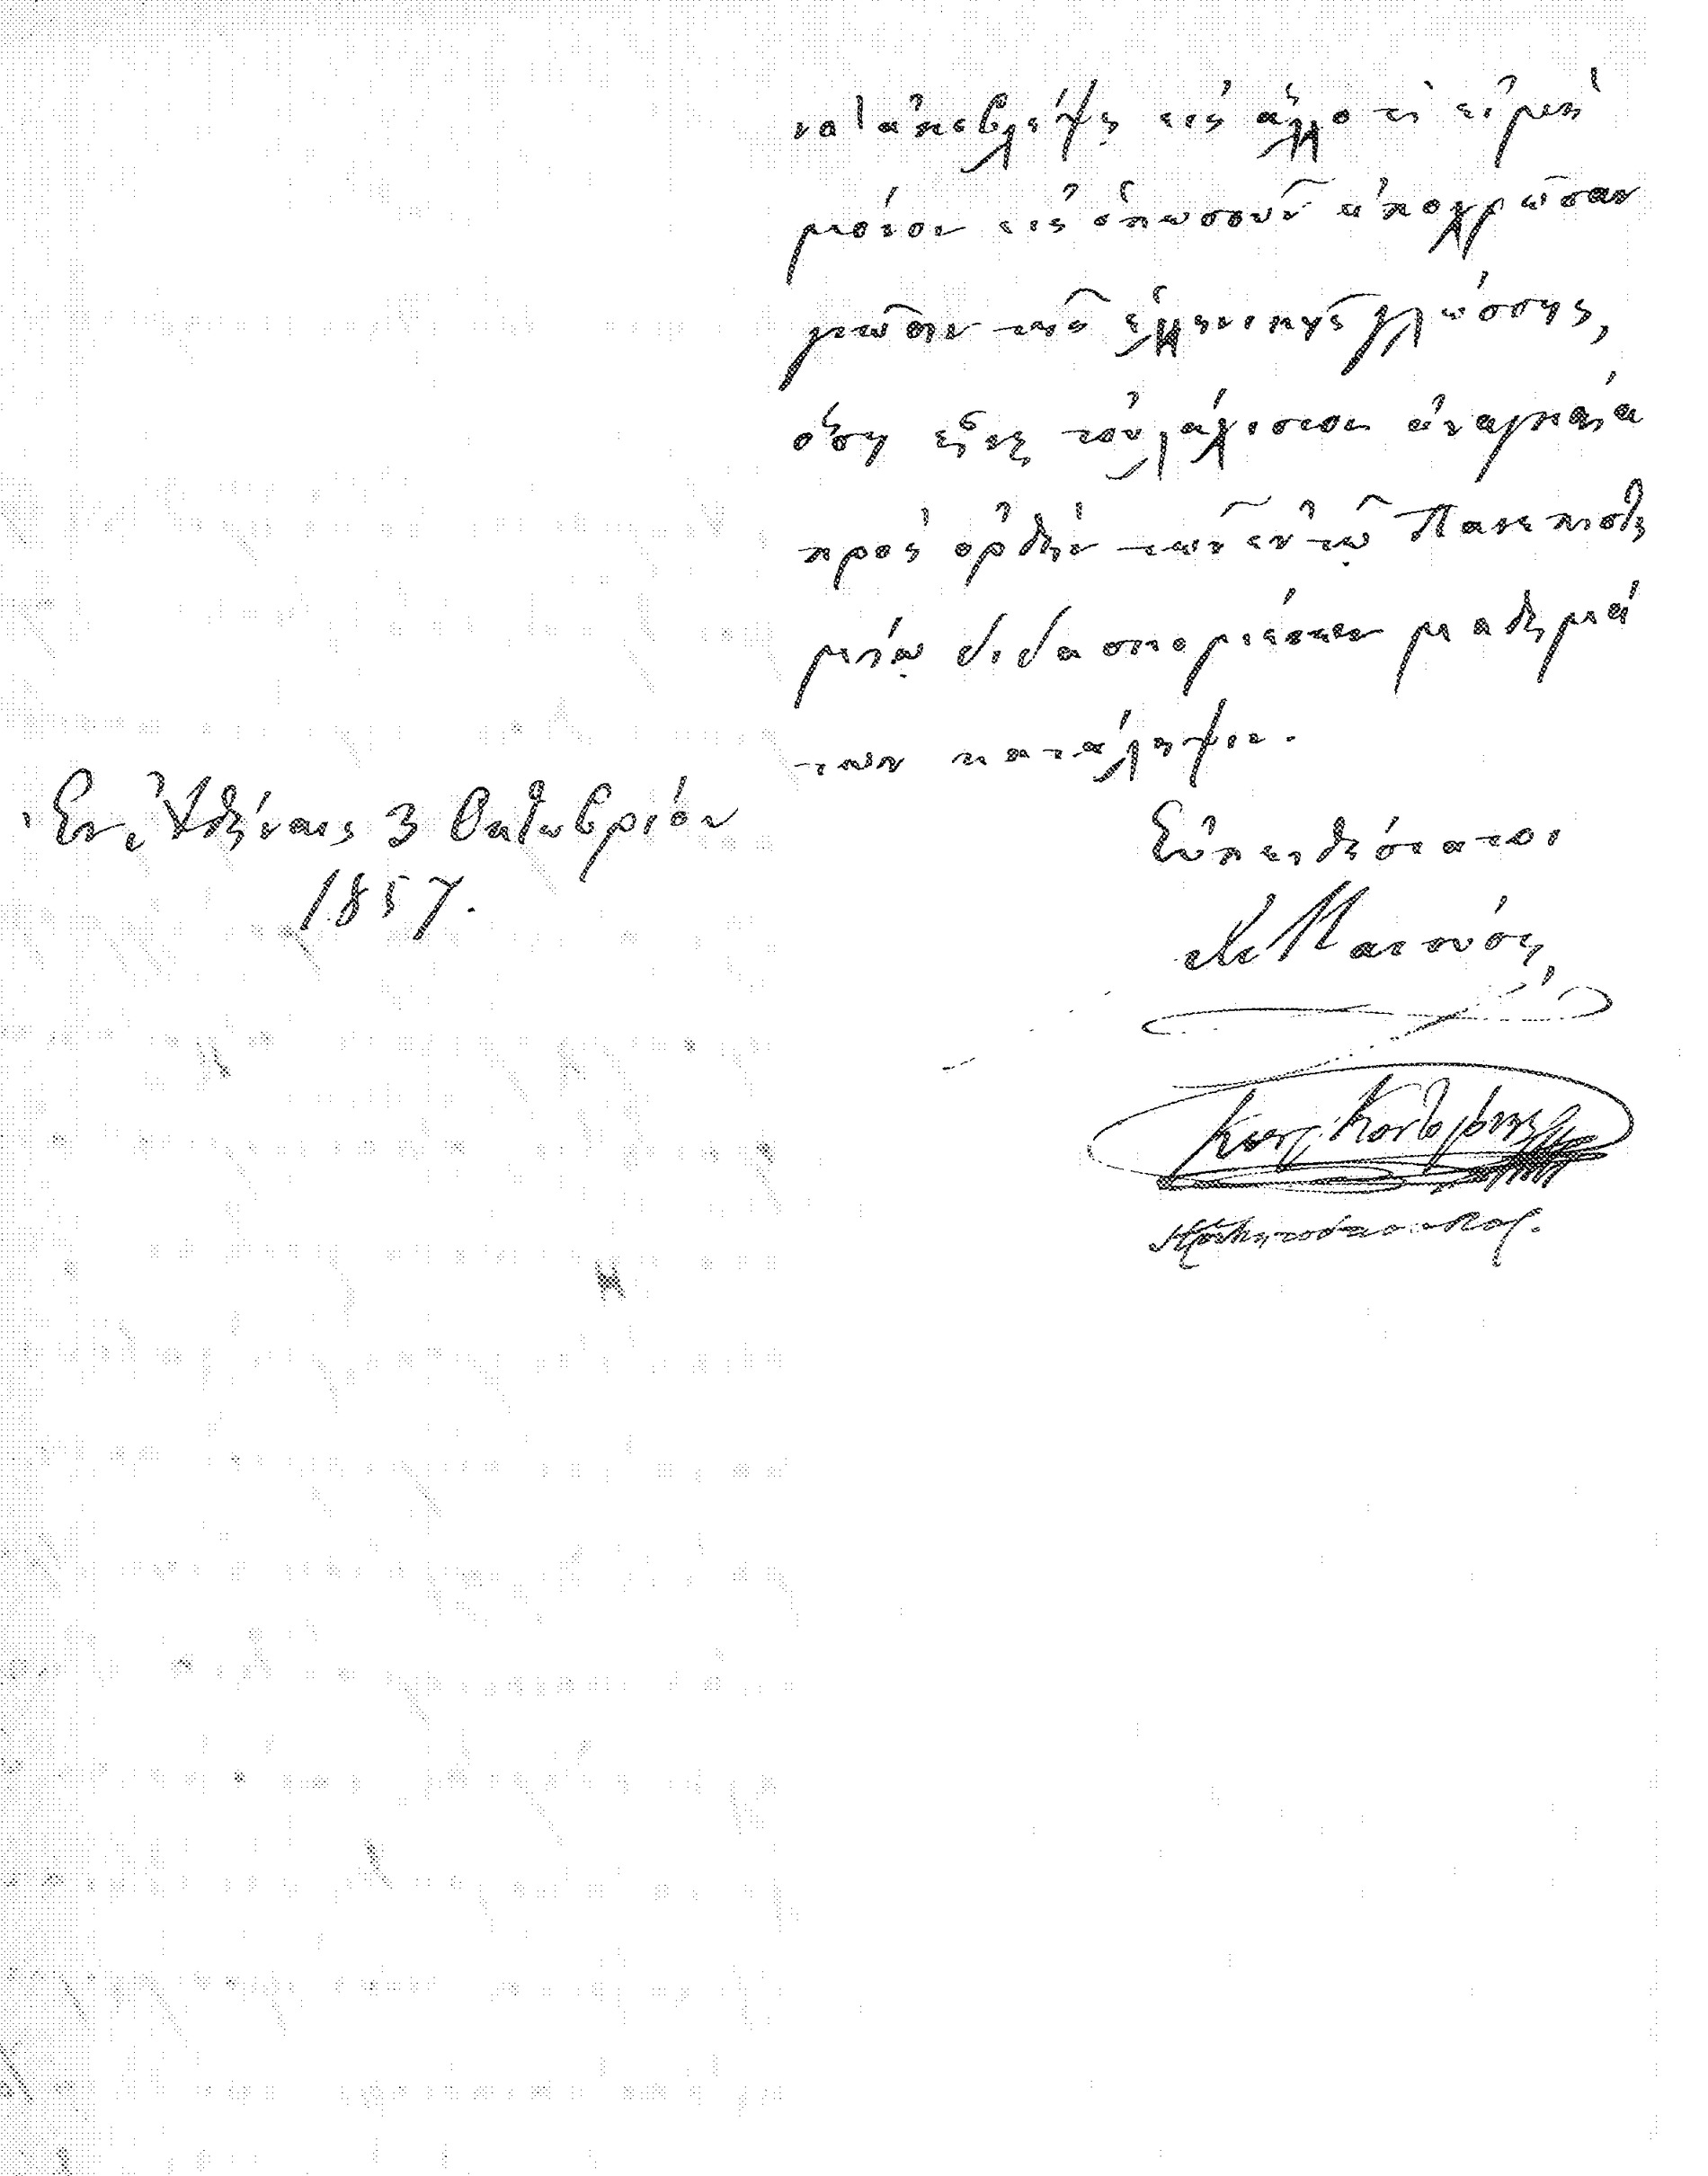 να ἀποβλέψῃ εἰς ἄλλο τι εἰμὴ
μόνον εἰς ὁπωσοῦν ἀποχρῶσαν
γνῶσιν τῆς ἑλληνικῆς γλώσσης,
ὅση εἶνε τοὐλάχιστον ἀναγκαία
πρὸς ὀρθὴν τῶν ἐν τῷ Πανεπιστη
μίῳ διδασκομένων μαθημά
των κατάληψιν.
Ἐν Ἀθήναις 3 Ὀκτωβρίου
1857.
Εὐπειθέστατοι
Κοντογόνης